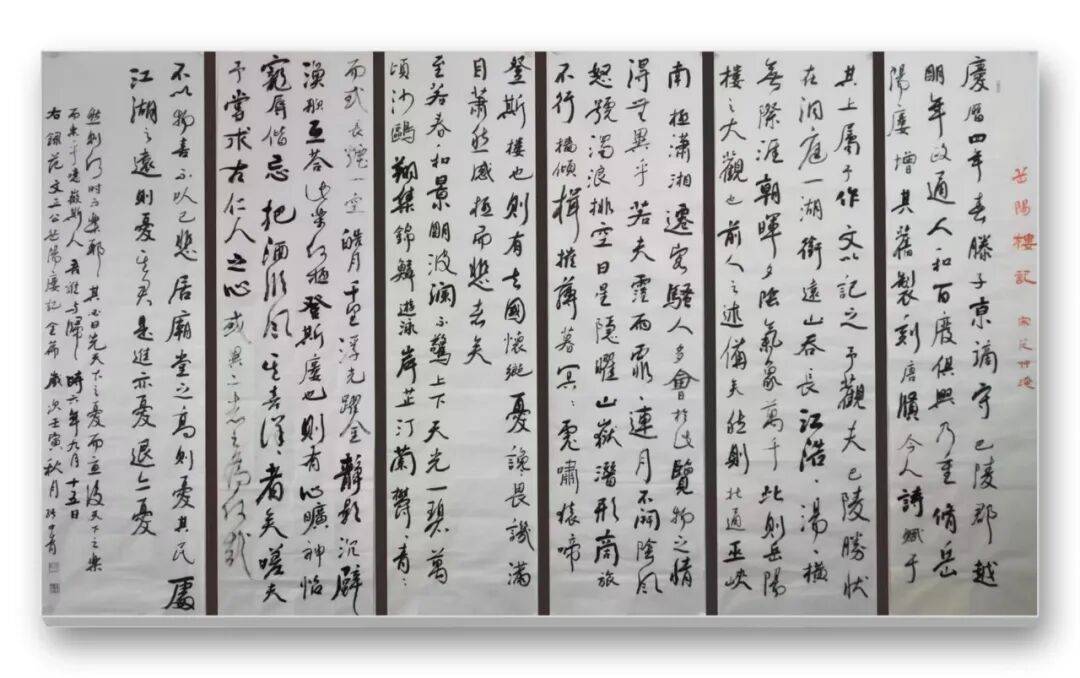 岳陽樓記 宋范仲淹
慶曆四年春滕子京謫守巴陵郡越
明年政通人和百廢俱興乃重脩岳
陽樓增其舊製刻唐賢今人詩賦于
其上屬予作文以記之予觀夫巴陵勝狀
在洞庭一湖銜遠山吞長江浩〻湯〻橫
無際涯朝暉夕陰氣象萬千此則岳陽
樓之大觀也前人之述備矣然則北通巫峽
南極瀟湘遷客騷人多會於此覽物之情
得無異乎若夫霪雨霏〻連月不開陰風
怒號濁浪排空日星隱曜山嶽潛形商旅
不行檣傾楫摧薄暮冥〻虎嘯猿啼
登斯樓也則有去國懷鄉憂讒畏譏滿
目蕭然感極而悲者矣
至若春和景明波瀾不驚上下天光一碧萬
頃沙鷗翔集錦鱗遊泳岸芷汀蘭鬱〻青〻
而或長煙一空皓月千里浮光躍金靜影沉璧
漁歌互答此樂何極登斯樓也則有心曠神怡
寵辱偕忘把酒臨風其喜洋〻者矣嗟夫
予嘗求古仁人之心或異二者之為何哉
不以物喜不以己悲居廟堂之高則憂其民處
江湖之遠則憂其君是進亦憂退亦憂
然則何時而樂耶其必曰先天下之憂而憂後天下之樂
而樂乎噫微斯人吾誰與歸 時六年九月十五日
右錄范文正公岳陽樓記全篇 歲次壬寅秋月